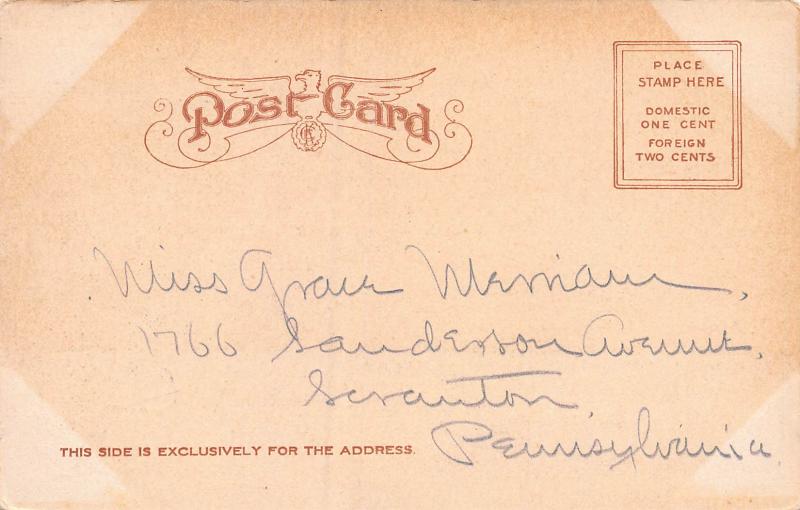 Post Card
PLACE
STAMP HERE
DOMESTIC
ONE CENT
FOREIGN
TWO CENTS
Miss Grace Merriam,
1766 Sanderson Avenue,
Scranton,
Pennsylvania
THIS SIDE IS EXCLUSIVELY FOR THE ADDRESS.